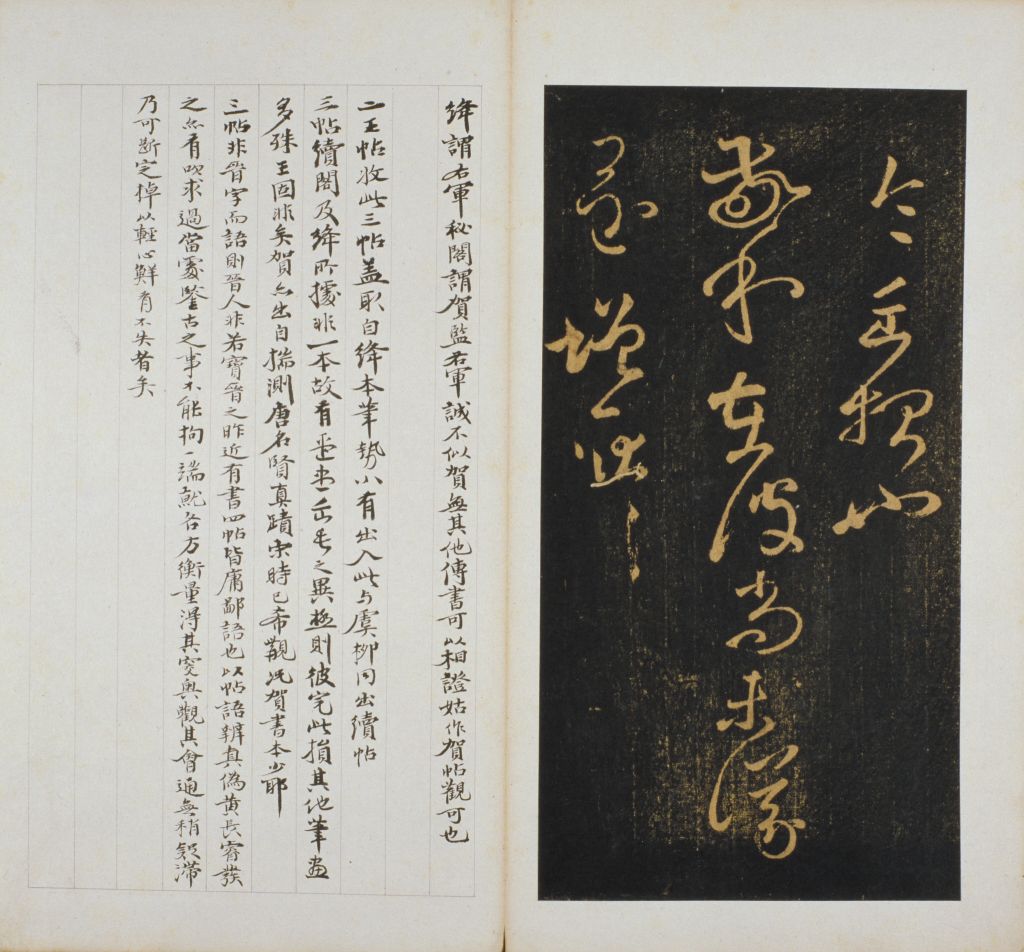 敬和在彼尚未議
還增
絳謂右軍秘閣謂賀監右軍誠不似賀無其他傳書可以相證姑作賀帖觀可也
二王帖收此三帖蓋取自絳本筆勢小有出入此与虞柳同出續帖
三帖續閣及絳所據非一本故有之異極則彼完此損其他筆畫
多殊王固非矣賀亦出自揣測唐名賢真蹟宋時已希觀況賀書本少耶
三帖非晉字而語則晉人非若寶晉之昨近有書四帖皆庸鄙語也以帖語辨真偽黃長睿發
之亦有吹求過當處鑒古之事不能拘一端就各方衡量得其窔奧觀其會通無稍疑滯
乃可断定掉以輕心鮮有不失者矣